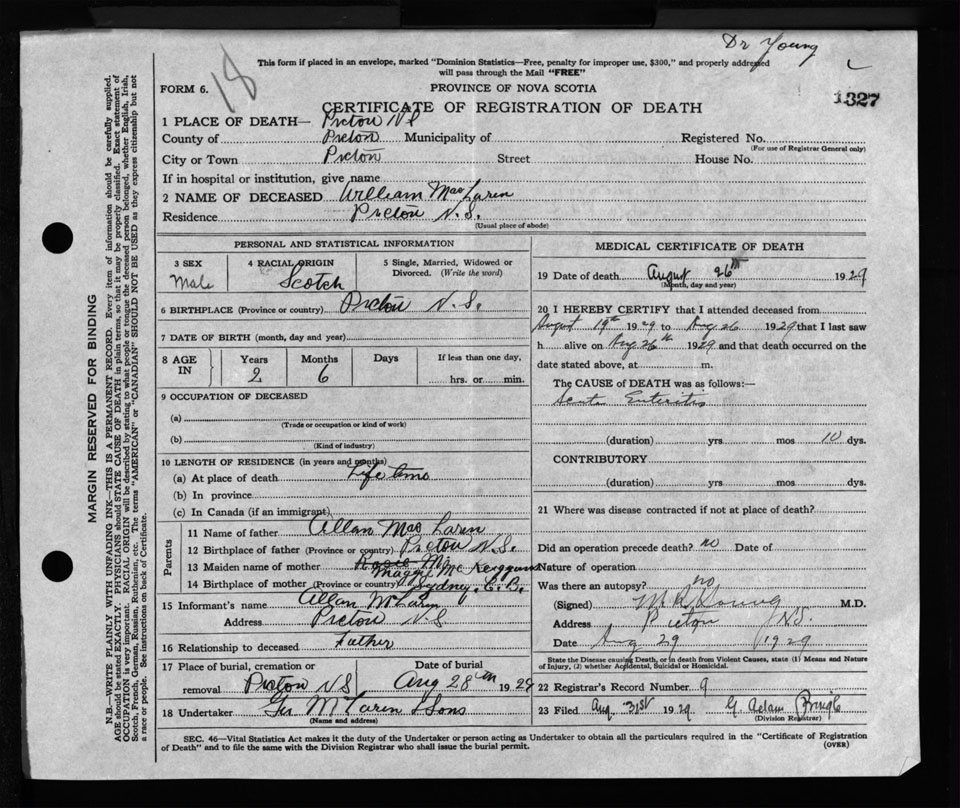 Dr Young
18
This form if placed in an envelope, marked "Dominion Statistics—Free, penalty for improper use, $300," and properly addressed
will pass through the Mail "FREE"
FORM 6.
PROVINCE OF NOVA SCOTIA
1327
CERTIFICATE OF REGISTRATION OF DEATH
1 PLACE OF DEATH— Pictou N S
County of Pictou Municipality of Registered No.
(For use of Registrar General only)
City or Town Pictou Street House No.
If in hospital or institution, give name
2 NAME OF DECEASED William MacLaren
Residence Pictou N.S.
(Usual place of abode)
PERSONAL AND STATISTICAL INFORMATION
3 SEX 4 RACIAL ORIGIN 5 Single, Married, Widowed or
Divorced. (Write the word)
Male Scotch
6 BIRTHPLACE (Province or country) Pictou N.S.
7 DATE OF BIRTH (month, day and year)
8 AGE IN Years Months Days If less than one day,
2 6 hrs. or min.
9 OCCUPATION OF DECEASED
(a)
(Trade or occupation or kind of work)
(b)
(Kind of industry)
10 LENGTH OF RESIDENCE (in years and months)
(a) At place of death Life time
(b) In province
(c) In Canada (if an immigrant)
Parents
11 Name of father Allan MacLaren
12 Birthplace of father (Province or country) Pictou N.S.
13 Maiden name of mother Maggy Mc
14 Birthplace of mother (Province or country) Sydney. C.B.
15 Informant's name Allan McLaren
Address Pictou N.S
16 Relationship to deceased Father
17 Place of burial, cremation or Date of burial
removal Pictou N S Aug 28th 1929
18 Undertaker Geo McLaren & Sons
(Name and address)
MEDICAL CERTIFICATE OF DEATH
19 Date of death August 26th 1929
(Month, day and year)
20 I HEREBY CERTIFY that I attended deceased from
August 19th 1929 to Aug 26 1929 that I last saw
h alive on Aug 26th 1929 and that death occurred on the
date stated above, at m.
The CAUSE of DEATH was as follows:—
Acute Enteritis
(duration) yrs mos 10 dys.
CONTRIBUTORY
(duration) yrs. mos. dys.
21 Where was disease contracted if not at place of death?
Did an operation precede death? no Date of
Nature of operation
Was there an autopsy? no
(Signed) Young M.D.
Address Pictou N.S.
Date Aug 29 1929
State the Disease causing Death, or in death from Violent Causes, state (1) Means and Nature
of Injury, (2) whether Accidental, Suicidal or Homicidal.
22 Registrar's Record Number 9
23 Filed Aug 31st 1929 G Adam Pringle
(Division Registrar)
SEC. 46—Vital Statistics Act makes it the duty of the Undertaker or person acting as Undertaker to obtain all the particulars required in the "Certificate of Registration
of Death" and to file the same with the Division Registrar who shall issue the burial permit.
(OVER)
MARGIN RESERVED FOR BINDING
N.B.—WRITE PLAINLY WITH UNFADING INK—THIS IS A PERMANENT RECORD. Every item of information should be carefully supplied.
AGE should be stated EXACTLY. PHYSICIANS should STATE CAUSE OF DEATH in plain terms, so that it may be properly classified. Exact statement of
OCCUPATION is very important. RACIAL ORIGIN will be described by stating to what people or tongue the deceased person belonged, whether English, Irish,
Scotch, French, German, Russian, Ruthenian, etc. The terms "AMERICAN" or "CANADIAN" SHOULD NOT BE USED as they express citizenship but not
a race or people. See instructions on back of Certificate.